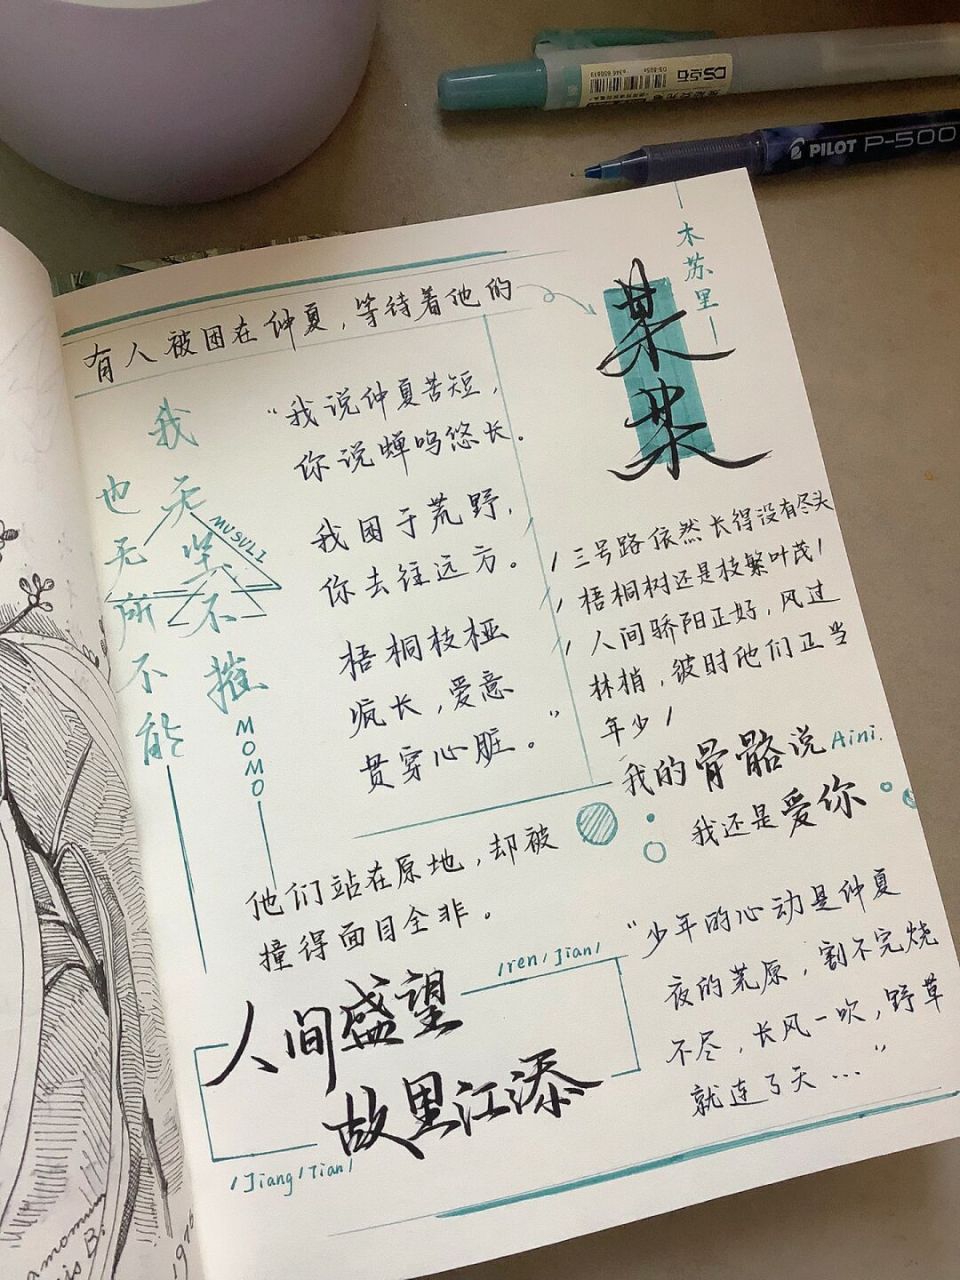 DS点石
DS-805s
PILOT P-500
木苏里
某某
有人被困在仲夏，等待着他的
我
无坚不摧
也无所不能
MUSULI
MOMO
“我说仲夏苦短，
你说蝉鸣悠长。
我困于荒野，
你去往远方。
梧桐枝桠
疯长，爱意
贯穿心脏。”
/三号路依然长得没有尽头
/梧桐树还是枝繁叶茂/
/人间骄阳正好，风过
林梢，彼时他们正当
年少/
我的骨骼说
Aini.
我还是爱你
他们站在原地，却被
撞得面目全非。
/ren/Jian/
人间盛望
故里江添
/Jiang/Tian/
“少年的心动是仲夏
夜的荒原，割不完烧
不尽，长风一吹，野草
就连了天…”